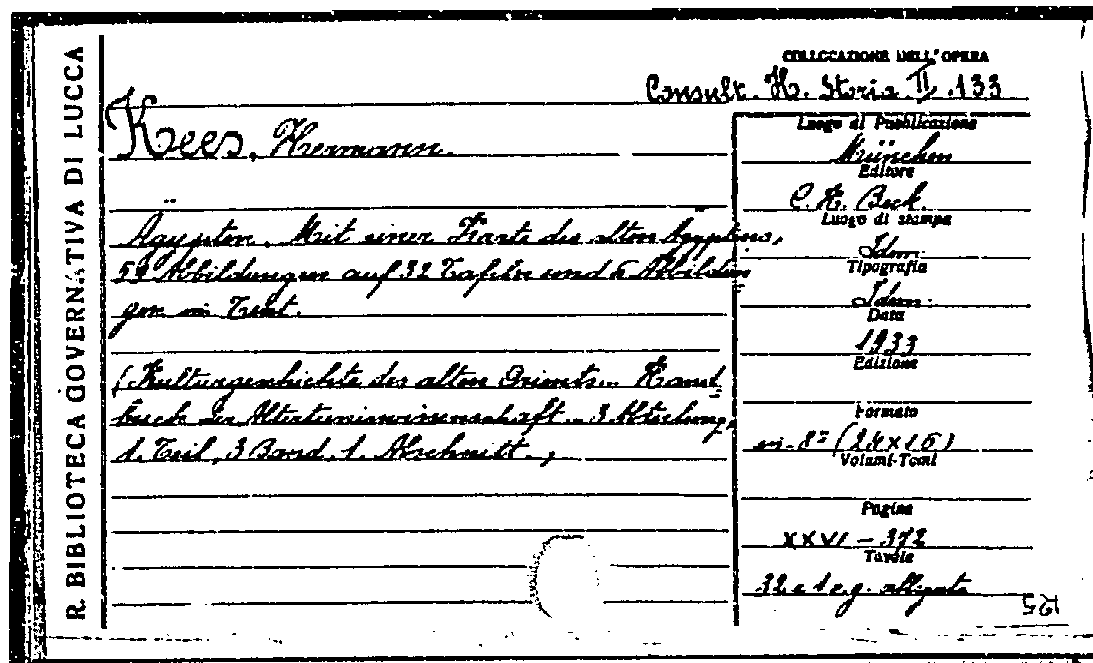 R. BIBLIOTECA GOVERNATIVA DI LUCCA
COLLOCAZIONE DELL'OPERA
Consult. H. Storia II. 133
Kees, Hermann.
Ägypten. Mit einer Karte des alten Ägyptens,
59 Abbildungen auf 32 Tafeln und 5 Abbildun=
gen im Text.
(Kulturgeschichte des alten Orients... Hand=
buch der Altertumswissenschaft... 3 Abteilung,
1. Teil, 3 Band. 1. Abschnitt.,
Luogo di Pubblicazione
München
Editore
C. H. Beck.
Luogo di stampa
Idem.
Tipografia
Idem.
Data
1933
Edizione
Formato
in-8º (24x16)
Volumi-Tomi
Pagine
XXVI - 372
Tavole
32 e 1 c.g. allegata